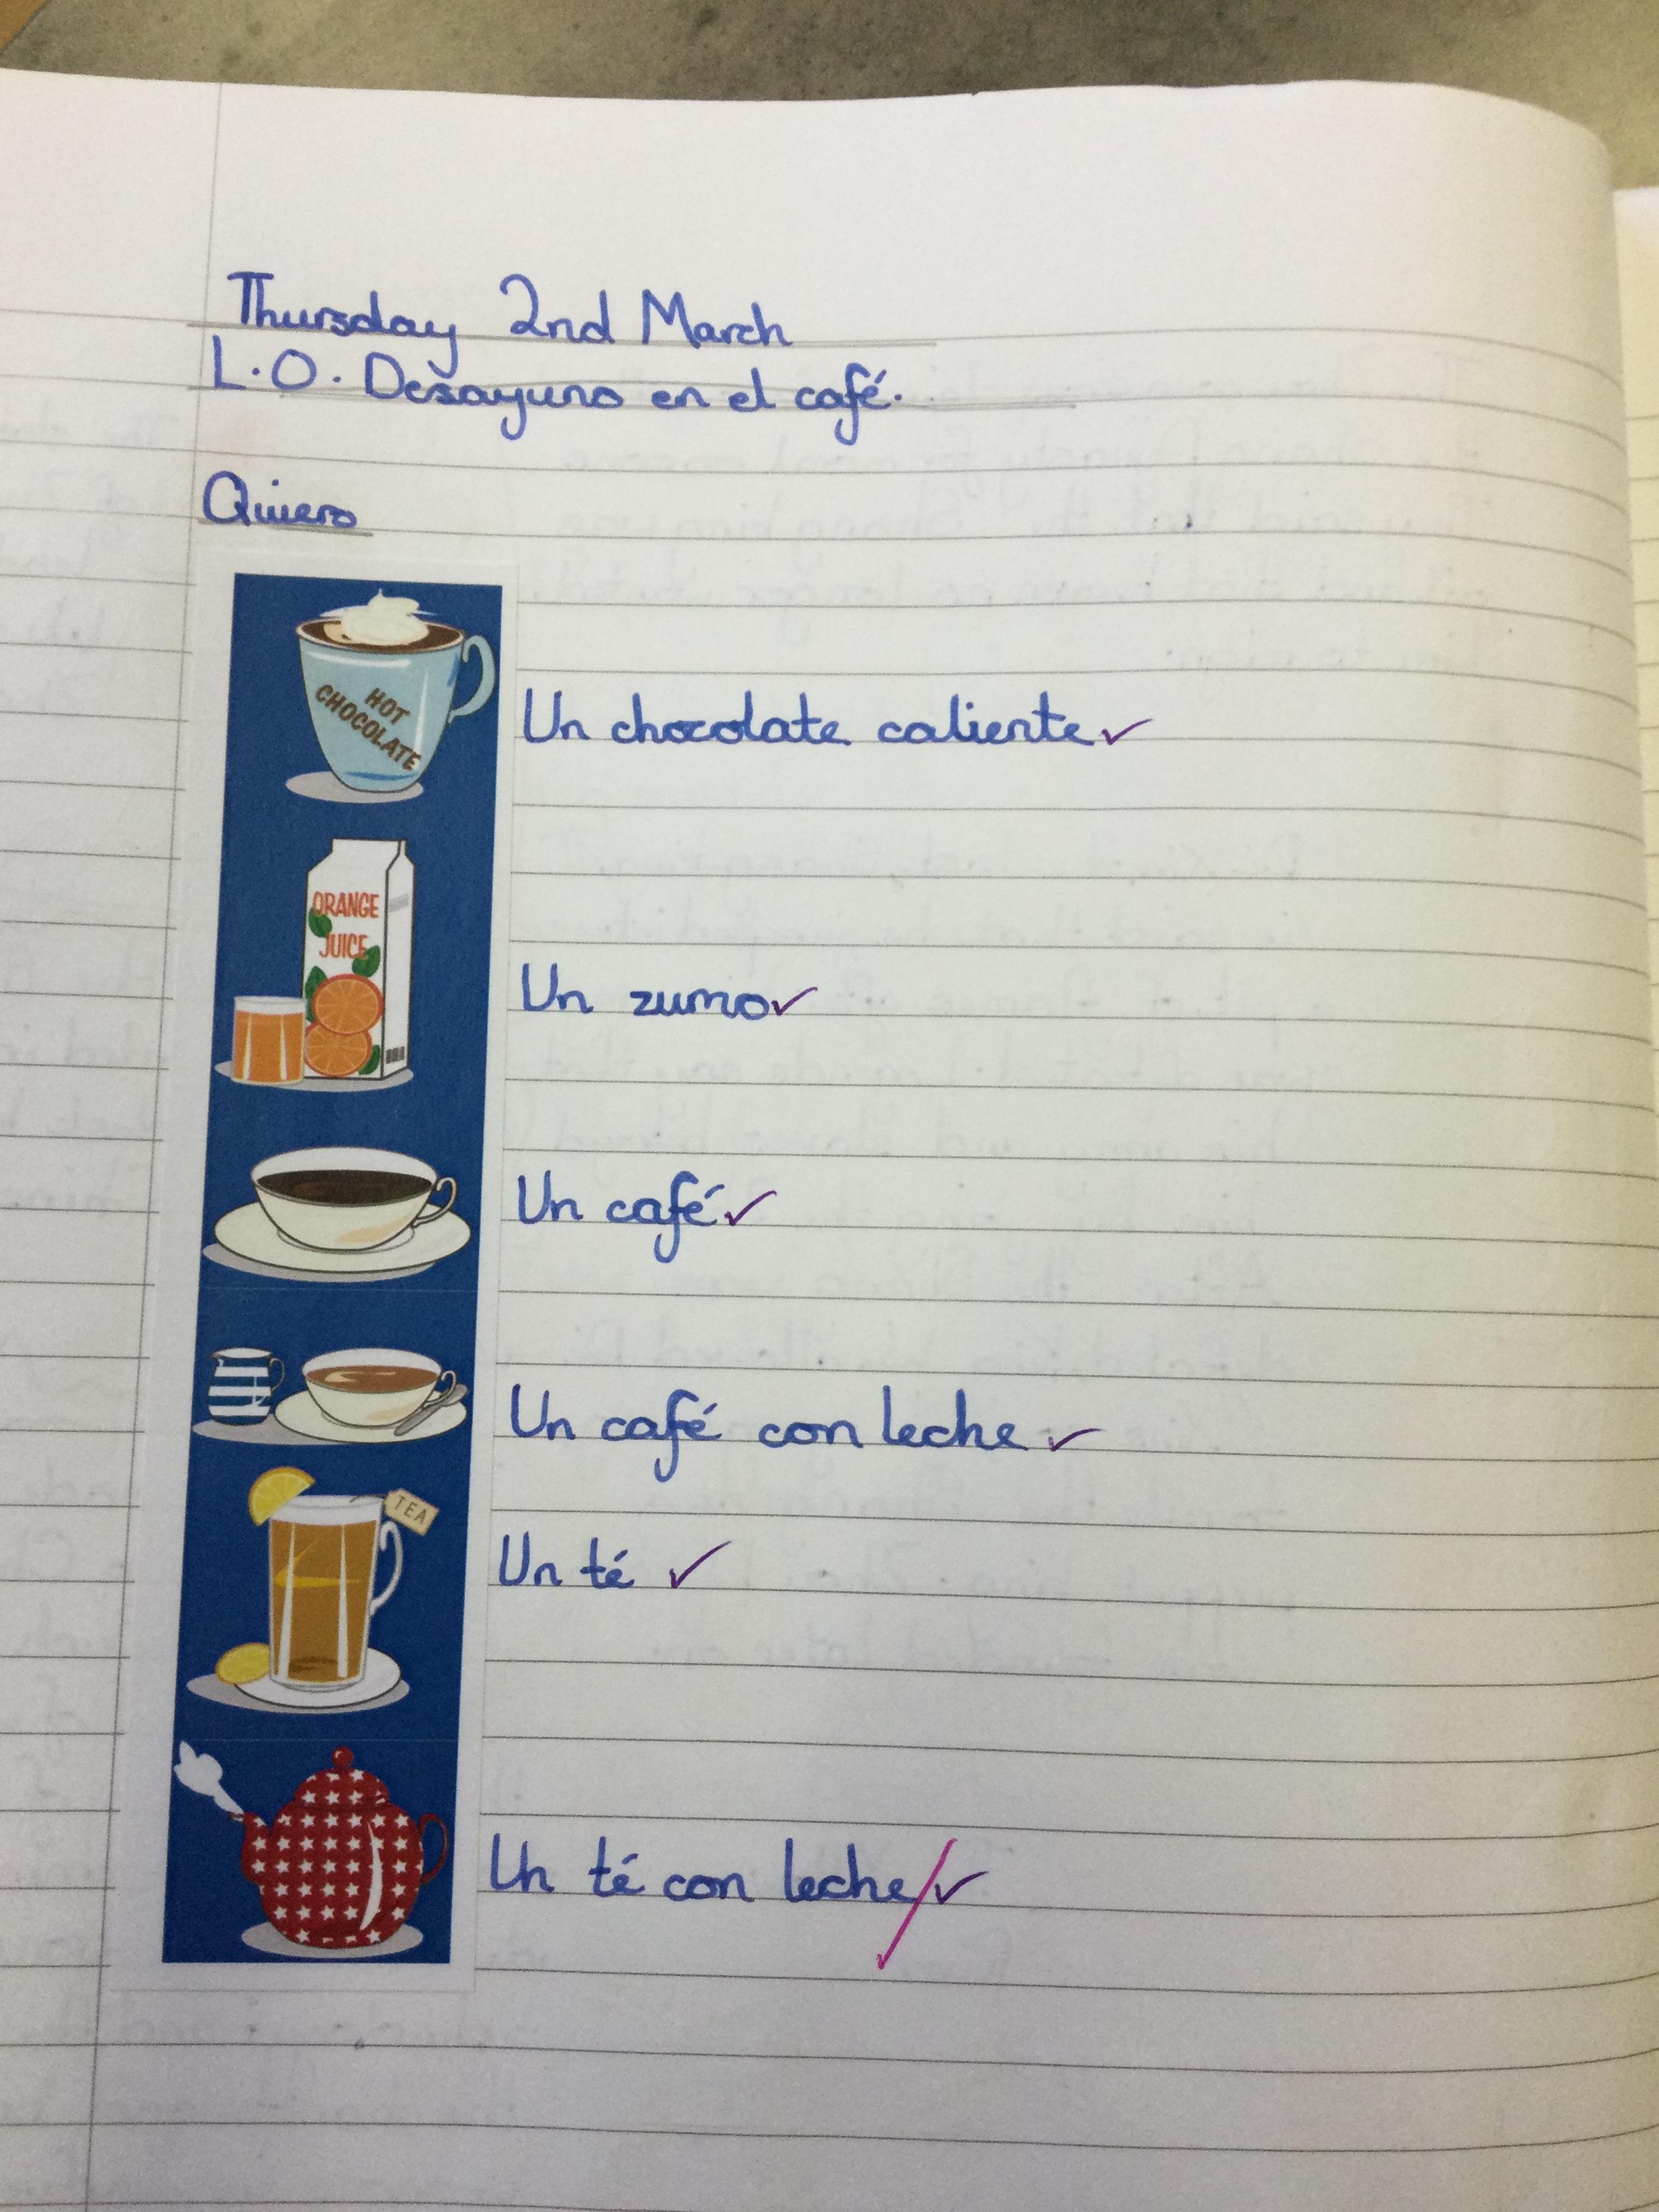 Thursday 2nd March
L.O. Desayuno en el café.
Quiero
HOT
CHOCOLATE
Un chocolate caliente
ORANGE
JUICE
Un zumo
Un café
Un café con leche
TEA
Un té
Un té con leche